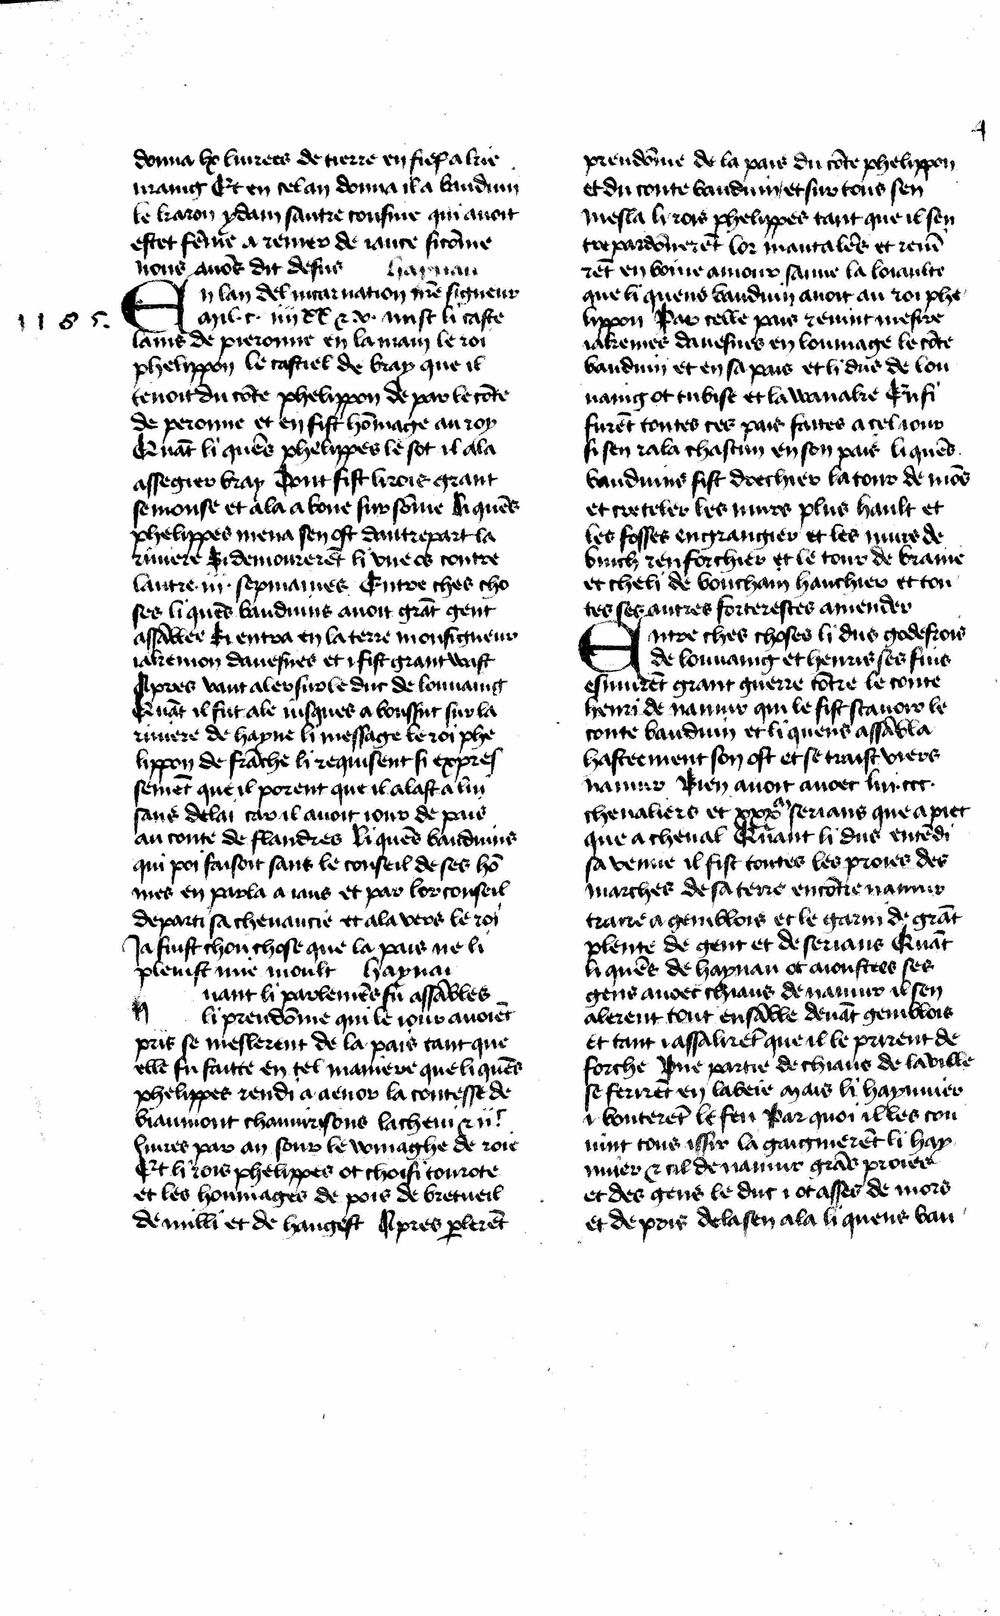 4
donna lx livrees de tierre en fief a lui
uranig Et en cel an donna il a bauduin
le karon ydain sautre cousine qui avoit
estet fēme a renier de iauce sicōme
nous avōs dit desus haynau
1185.
En lan del incarnation nr̄e signeur
mil · c · iiii xx & v · mist li caste
lains de pieronne en la main le roi
phelippon le castiel de bray que il
tenoit du cōte phelippon de par le cōte
de peronne et en fist hōmage au roy
Quāt li quēs phelippes le sot il ala
assegier bray Dont fist li rois grant
semonse et ala a bove sur sōme li quēs
phelippes mena sen ost dautre part la
riviere Si demourerēt li une os contre
lautre · iii · sepmaines Entre ches cho
ses li quēs bauduins avoit grāt gent
assāblee Si entra en la terre monsigneur
iakemon davesnes et i fist grant wast
Apres vaut aler sur le duc de louvaing
Quāt il fut ale iusques a boussut sur la
riviere de hayne li message le roi phe
lippon de frāche li requisent si expres
semēt que il porent que il alast a lui
sans delai car il avoit iour de pais
au conte de flandres li quēs bauduins
qui poi faisoit sans le conseil de ses hō
mes en parla a iaus et par lor conseil
departi sa chevaucie et ala vers le roi
Ja fuist chou chose que la pais ne li
pleuist mie moult haynau
Quant li parlemēs fu assābles
li prendōme qui le iour avoiēt
pris se meslerent de la pais tant que
elle fu faitte en tel maniere que li quēs
phelippes rendi a aenor la contesse de
biaumont chaunisons lacheni & ii c
livres par an sour le winaghe de roie
Et li rois phelippes ot choisi tourote
et les hommages de pois de bretueil
de milli et de hangest Apres plerēt
prendōme de la pais du cōte phelippon
et du conte bauduin et sur tous sen
mesla li rois phelippes tant que il sen
tre pardōnerēt lor mautalēs et revī
rēt en boine amour sauve la loiaulte
que li quens bauduin avoit au roi phe
lippon Par celle pais revint mesire
iakemes davesnes en hommage le cōte
bauduin et en sa pais et li dus de lou
vaing ot tubise et la wanake Ensi
furēt toutes ces pais faites a cel iour
si sen rala chascun en son pais li quēs
bauduins fist drechier la tour de mōs
et creteler les murs plus hault et
les fosses engrangier et les murs de
binch renforchier et le tour de braine
et cheli de bouchain hauchier et tou
tes ses autres forterestes amender
Entre ches choses li dus godefrois
de louvaing et henris ses fius
esmurēt grant guerre cōtre le conte
henri de namur qui le fist scavoir le
conte bauduin et li quens assābla
hastecment son ost et se traist viers
namur Bien avoit avoec lui · ccc ·
chevaliers et xxx m serians que a piet
que a cheval Quant li dus entēdi
sa venue il fist toutes les proies des
marches de sa terre encōtre namur
traire a gemblois et le garni de grāt
plente de gent et de serians Quāt
li quēs de haynau ot aioustees ses
gens avoec chiaus de namur il sen
alerent tout ensāble devāt gemblois
et tant i assalirēt que il le prirent de
forche Une partie de chiaus de la ville
se ferirēt en labeie Mais li haynuier
i bouterēt le feu Par quoi il les cou
vint tous issir la gaignierēt li hay
nuier & cil de namur grās proies
et des gens le duc i ot asses de mors
et de pris de la sen ala li quens bau